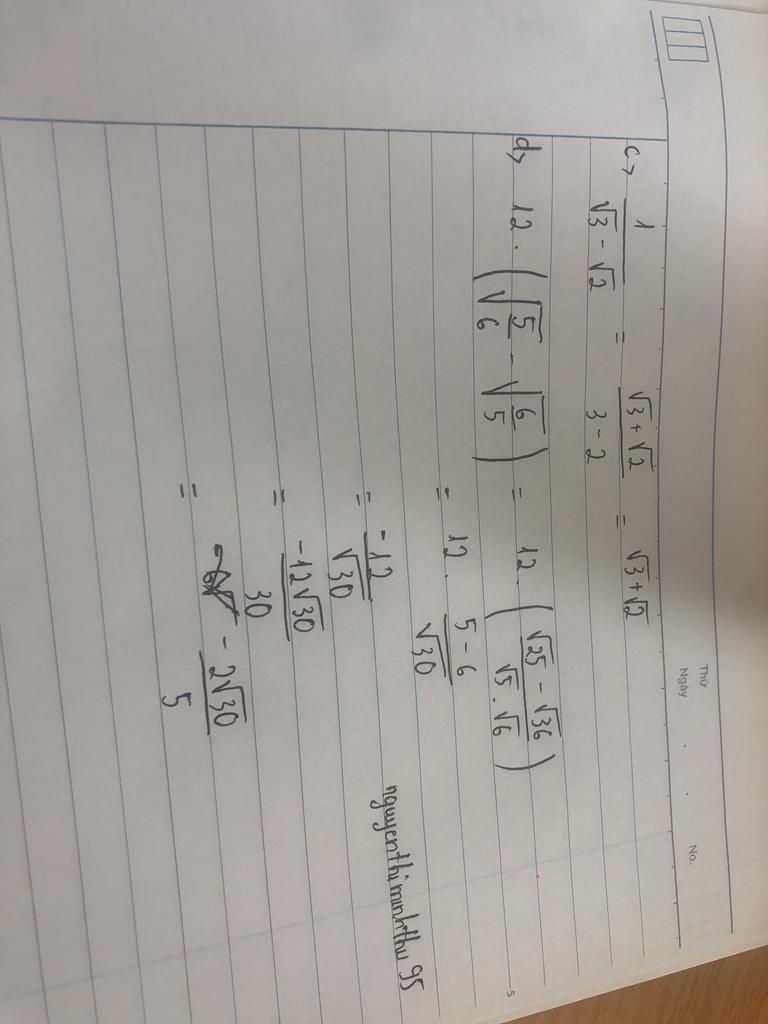 Thứ
Ngày . . No.
c> 1/(√3 - √2) = (√3 + √2)/(3 - 2) = √3 + √2
d> 12 . (√(5/6) - √(6/5)) = 12 . ((√25 - √36)/(√5 . √6))
= 12 . (5 - 6)/√30
= -12/√30
= -12√30/30
= - 2√30/5
nguyenthiminhthu 95
5